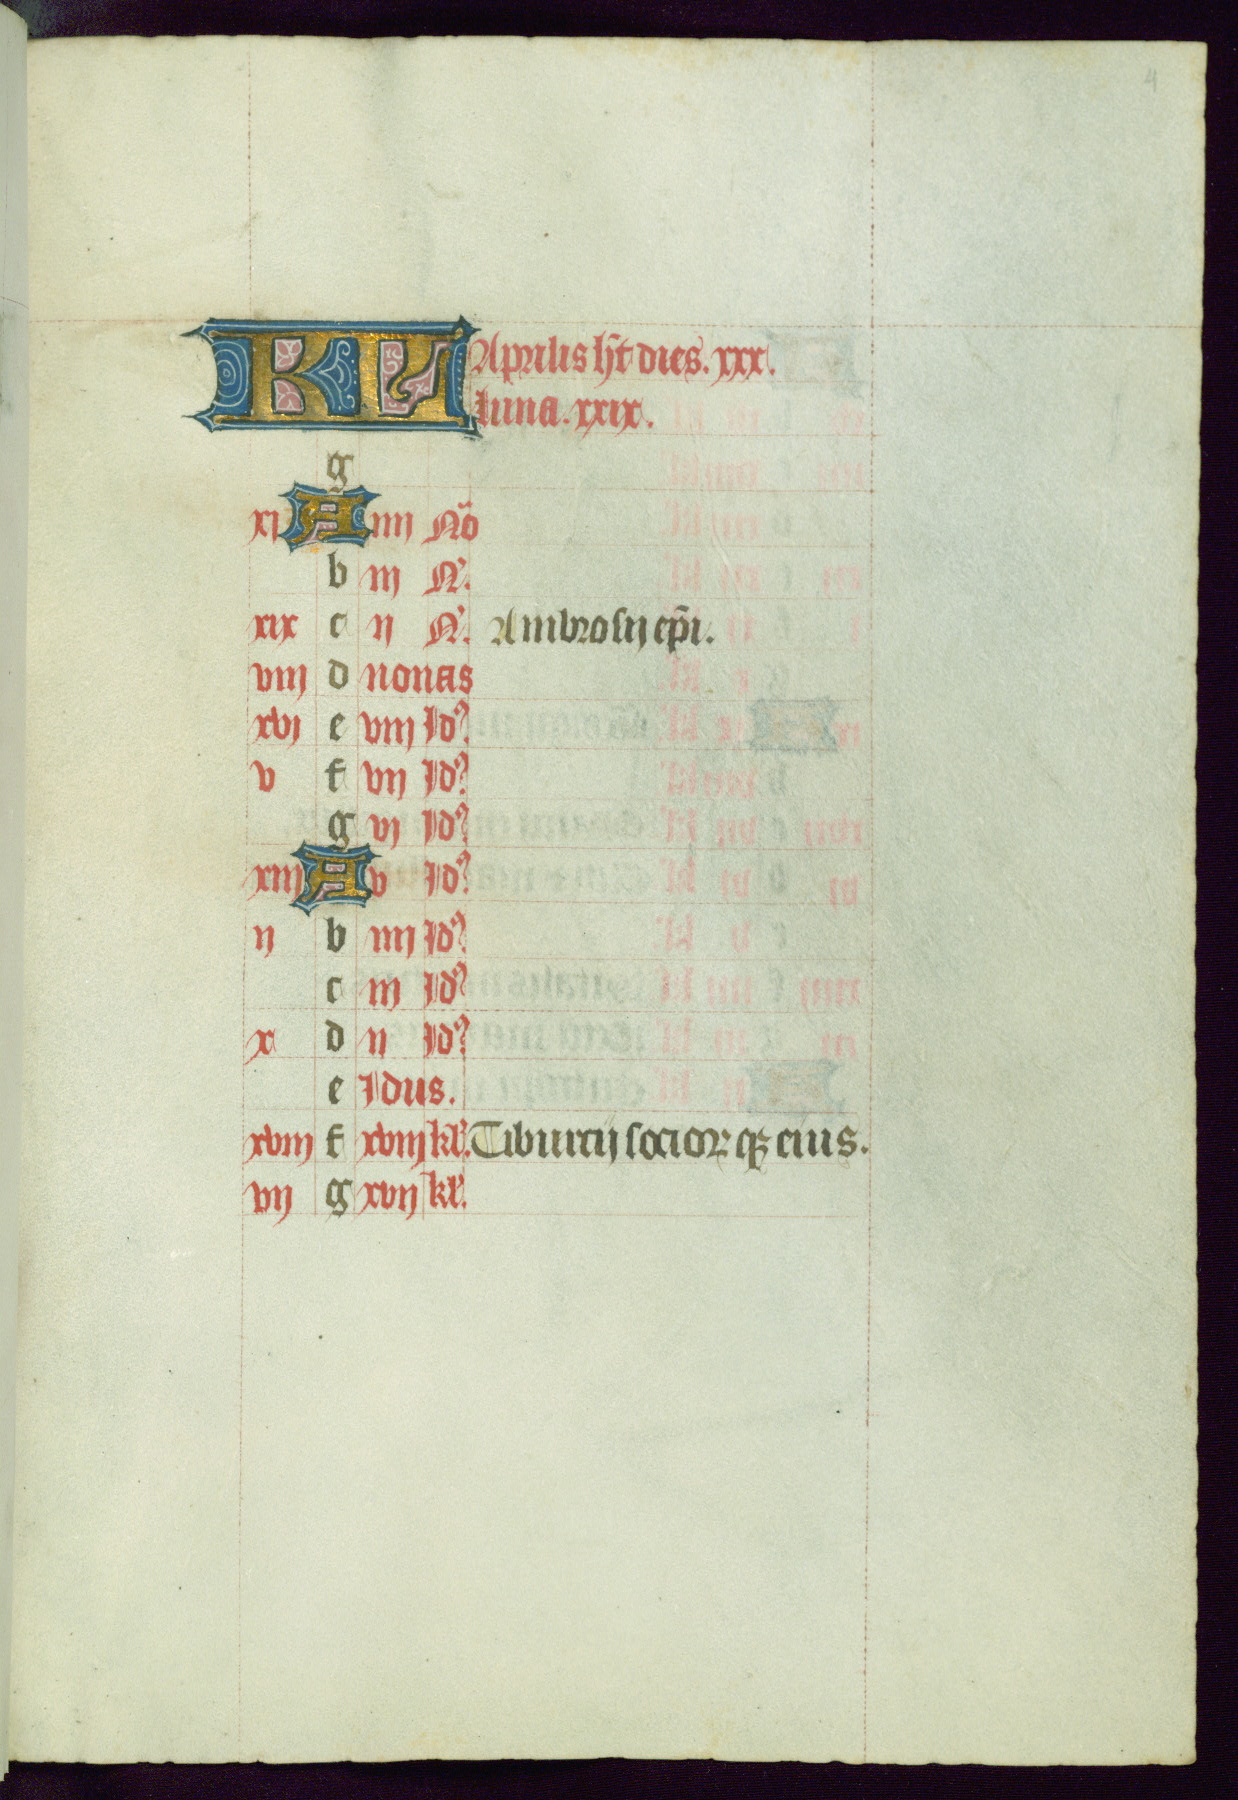 4
KL Aprilis h̄t dies. xxx.
luna. xxix.
g
xj A iiij No᷒
b iij N̾.
xix c ij N̾. Ambrosij ep̄i.
viij d nonas
xvj e viij Idꝰ
v f vij Idꝰ
g vj Idꝰ
xiij A v Idꝰ
ij b iiij Idꝰ
c iij Idꝰ
x d ij Idꝰ
e Idus.
xviij f xviij kl̾. Tiburcij socioꝝ qꝫ eius.
vij g xvij kl̾.